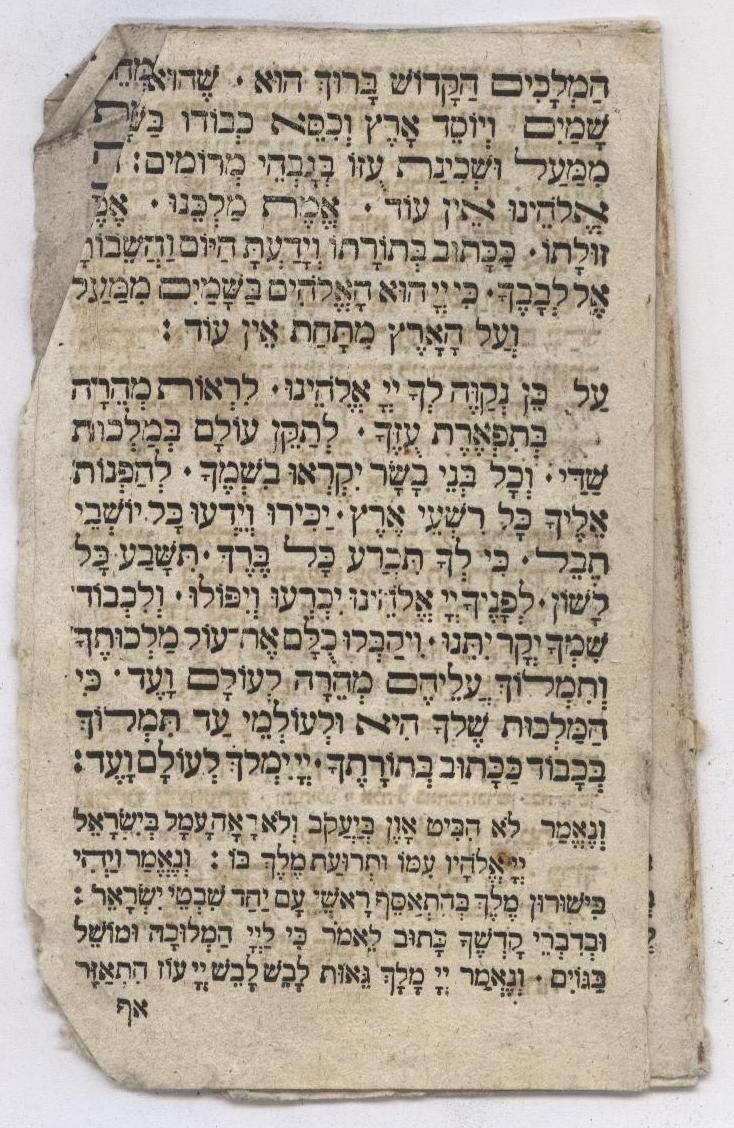 הַמְלָכִים הַקָּדוֹשׁ בָּרוּךְ הוּא · שֶׁהוּא
שָׁמַיִם וְיוֹסֵד אָרֶץ וְכִסֵּא כְבוֹדוֹ
מִמַּעַל וּשְׁכִינַת עֻזּוֹ בְּגָבְהֵי מְרוֹמִים :
אֱלֹהֵינוּ אֵין עוֹד · אֱמֶת מַלְכֵּנוּ ·
זוּלָתוֹ · כַּכָּתוּב בְּתוֹרָתוֹ וְיָדַעְתָּ הַיּוֹם וַהֲשֵׁבוֹתָ
אֶל לְבָבֶךָ · כִּי יְיָ הוּא הָאֱלֹהִים בַּשָּׁמַיִם מִמַּעַל
וְעַל הָאָרֶץ מִתָּחַת אֵין עוֹד :
עַל כֵּן נְקַוֶּה לְךָ יְיָ אֱלֹהֵינוּ · לִרְאוֹת מְהֵרָה
בְּתִפְאֶרֶת עֻזֶּךָ · לְתַקֵּן עוֹלָם בְּמַלְכוּת
שַׁדַּי · וְכָל בְּנֵי בָשָׂר יִקְרְאוּ בִשְׁמֶךָ · לְהַפְנוֹת
אֵלֶיךָ כָּל רִשְׁעֵי אָרֶץ · יַכִּירוּ וְיֵדְעוּ כָּל יוֹשְׁבֵי
תֵבֵל · כִּי לְךָ תִּכְרַע כָּל בֶּרֶךְ · תִּשָּׁבַע כָּל
לָשׁוֹן · לְפָנֶיךָ יְיָ אֱלֹהֵינוּ יִכְרְעוּ וְיִפּוֹלוּ · וְלִכְבוֹד
שִׁמְךָ יְקָר יִתֵּנוּ · וִיקַבְּלוּ כֻלָּם אֶת־עוֹל מַלְכוּתֶךָ
וְתִמְלוֹךְ עֲלֵיהֶם מְהֵרָה לְעוֹלָם וָעֶד · כִּי
הַמַּלְכוּת שֶׁלְּךָ הִיא וּלְעוֹלְמֵי עַד תִּמְלוֹךְ
בְּכָבוֹד כַּכָּתוּב בְּתוֹרָתֶךָ · יְיָ יִמְלֹךְ לְעוֹלָם וָעֶד :
וְנֶאֱמַר לֹא הִבִּיט אָוֶן בְּיַעֲקֹב וְלֹא רָאָה עָמָל בְּיִשְׂרָאֵל
יְיָ אֱלֹהָיו עִמּוֹ וּתְרוּעַת מֶלֶךְ בּוֹ : וְנֶאֱמַר וַיְהִי
בִישׁוּרוּן מֶלֶךְ בְּהִתְאַסֵּף רָאשֵׁי עָם יַחַד שִׁבְטֵי יִשְׂרָאֵל :
וּבְדִבְרֵי קָדְשְׁךָ כָּתוּב לֵאמֹר כִּי לַיְיָ הַמְּלוּכָה וּמוֹשֵׁל
בַּגּוֹיִם · וְנֶאֱמַר יְיָ מָלָךְ גֵּאוּת לָבֵשׁ לָבֵשׁ יְיָ עוֹז הִתְאַזָּר
אף